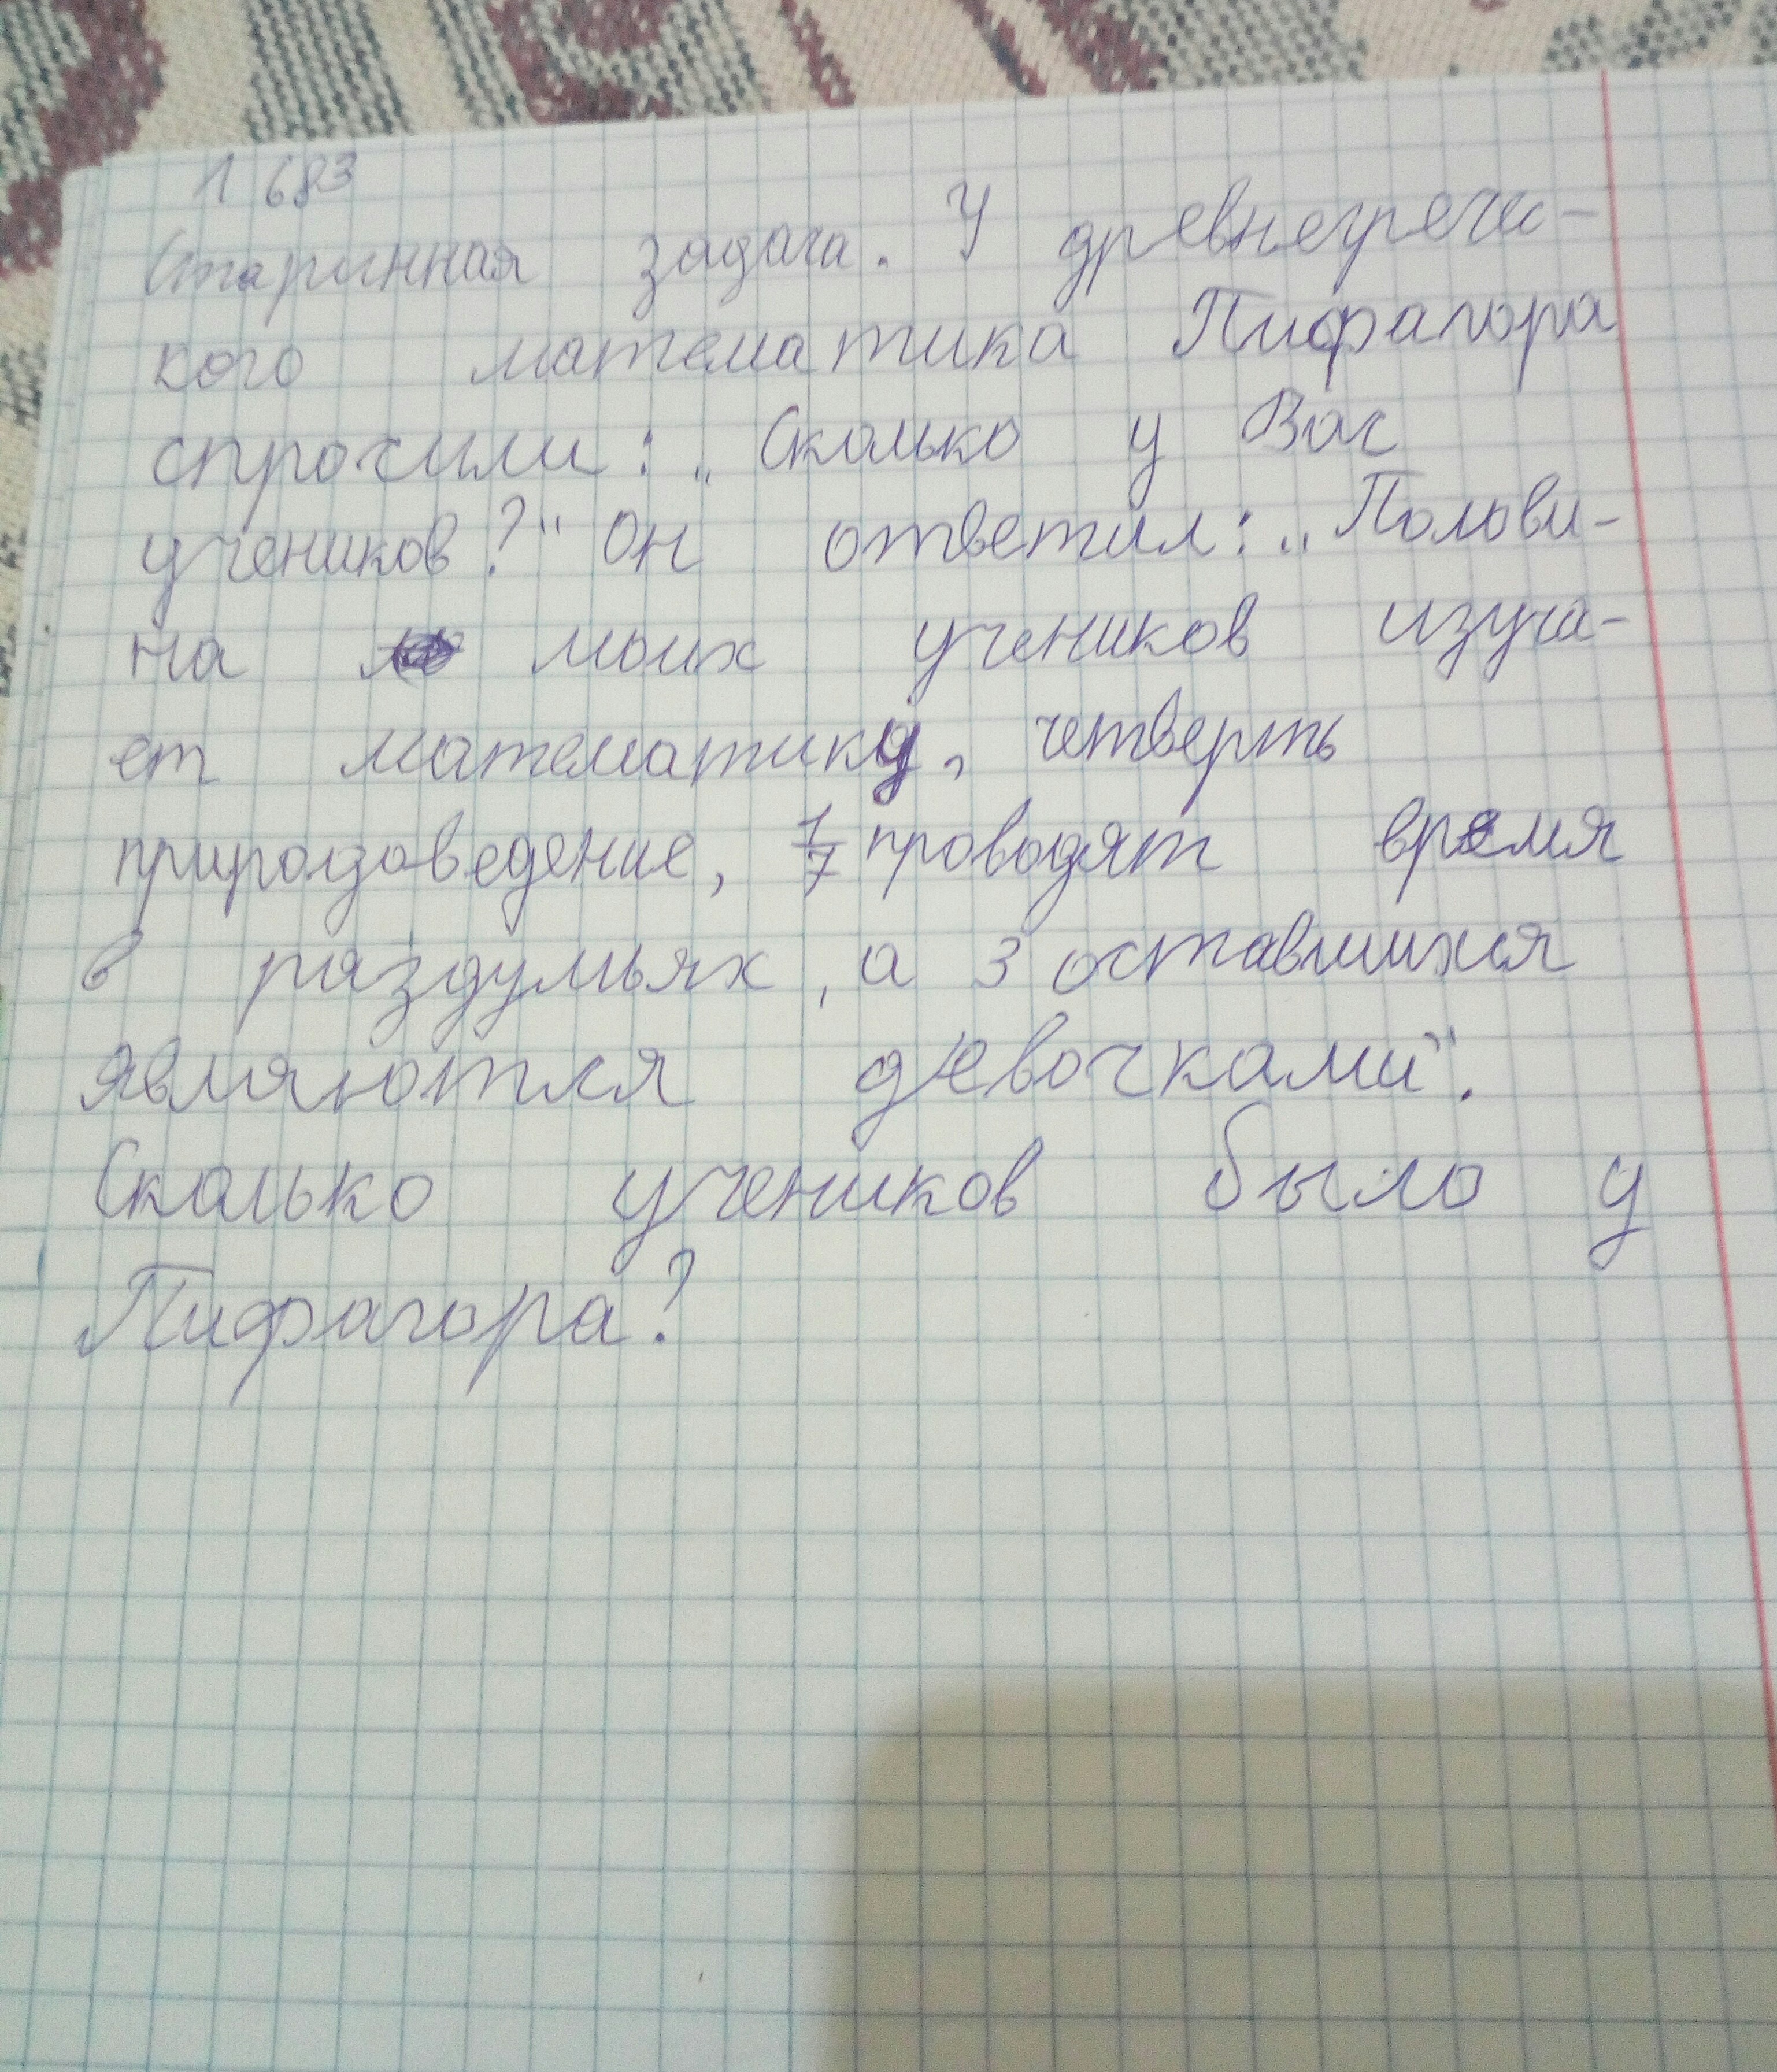 1 683
Старинная задача. У древнегречес-
кого математика Пифагора
спросили: „Сколько у Вас
учеников?" Он ответил: „Полови-
на моих учеников изуча-
ет математику, четверть
природоведение, 1/7 проводят время
в раздумьях, а 3 оставшихся
являются девочками".
Сколько учеников было у
Пифагора?